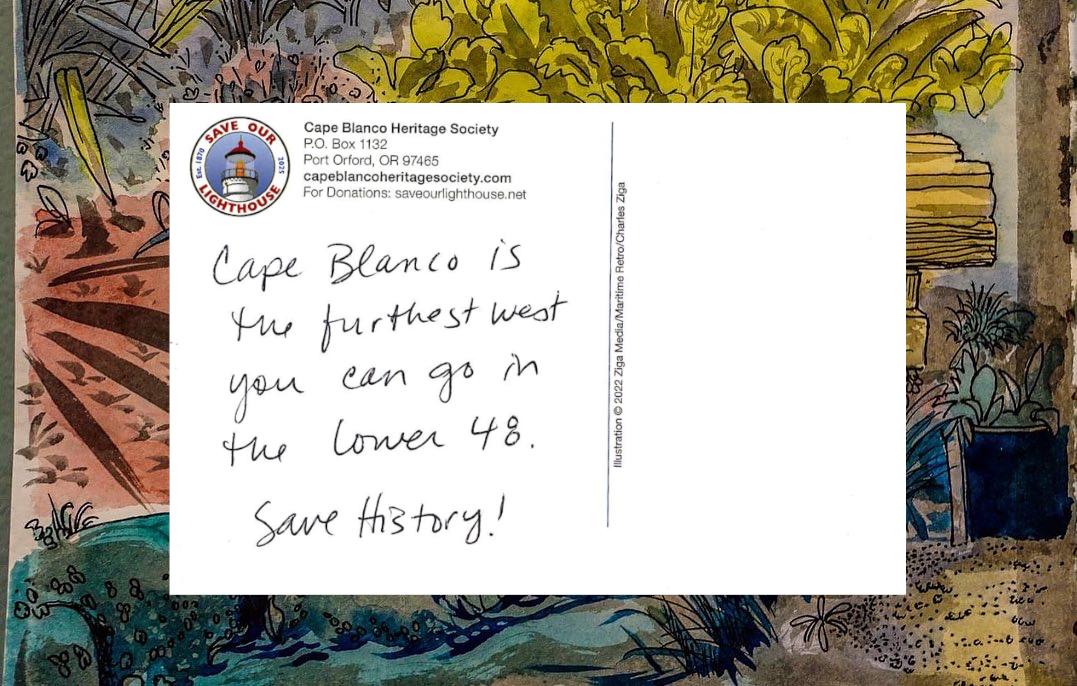 SAVE OUR
Est. 1870
2025
LIGHTHOUSE
Cape Blanco Heritage Society
P.O. Box 1132
Port Orford, OR 97465
capeblancoheritagesociety.com
For Donations: saveourlighthouse.net
Cape Blanco is
the furthest west
you can go in
the lower 48.
Save History!
Illustration © 2022 Ziga Media/Maritime Retro/Charles Ziga